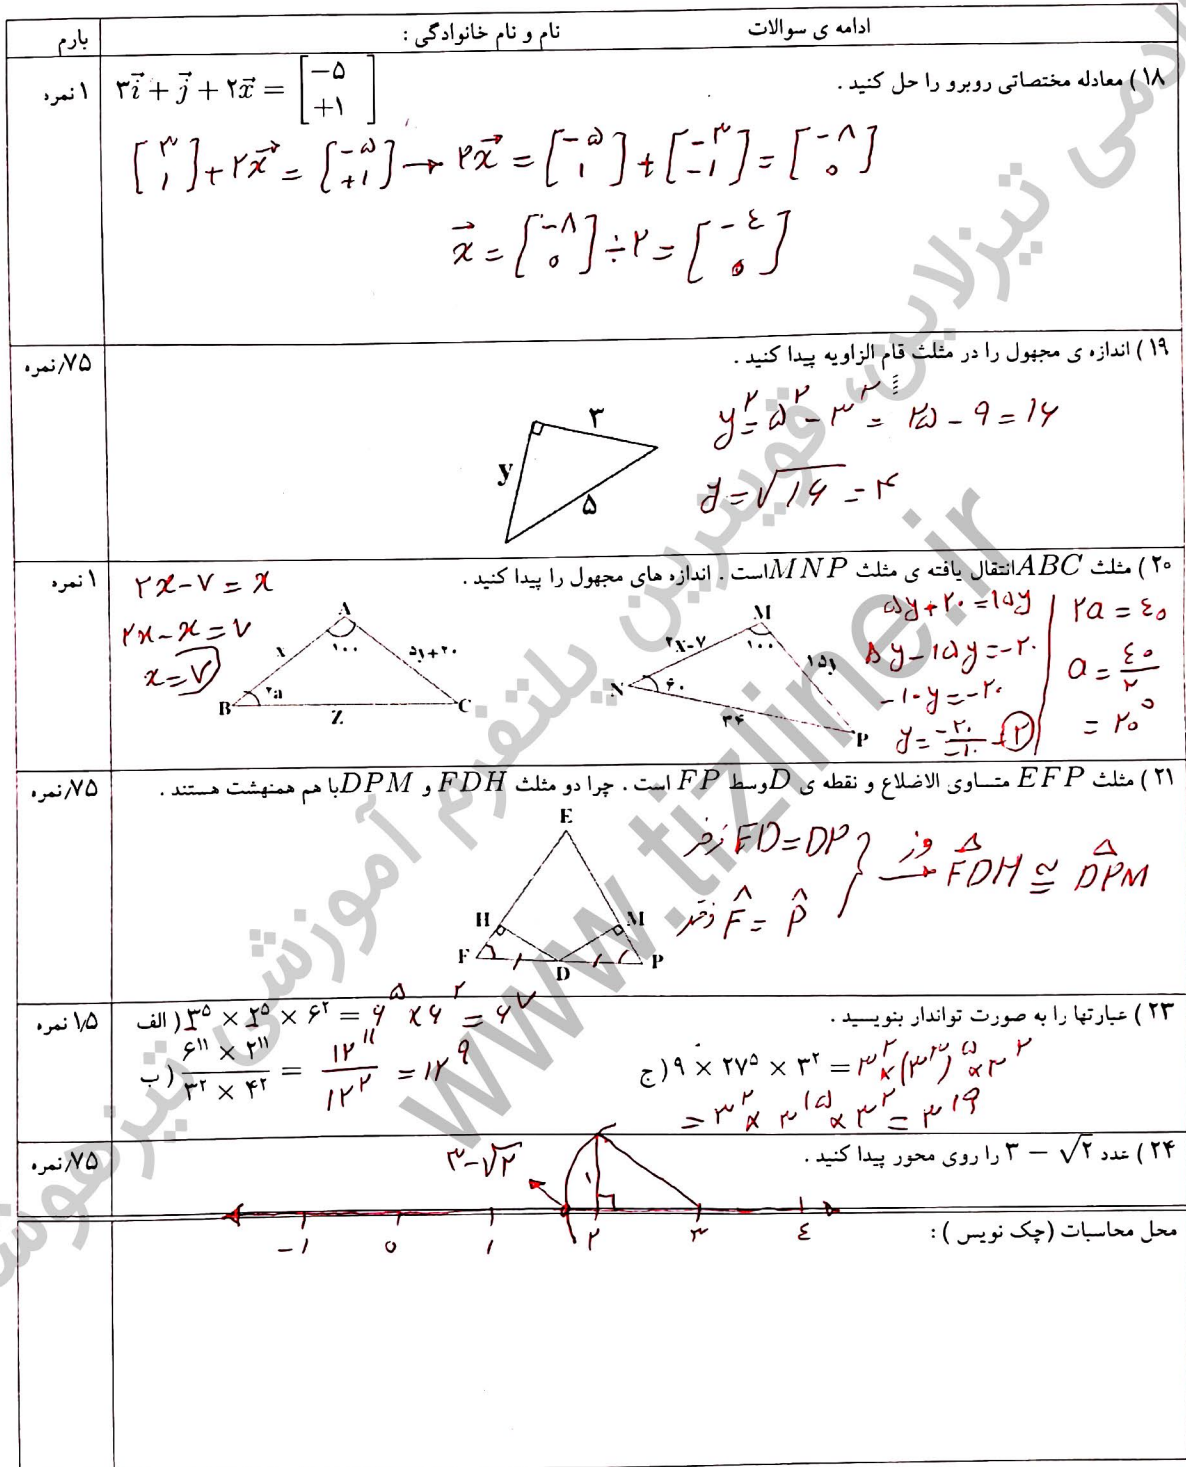 ادامه ی سوالات
نام و نام خانوادگی :
بارم
۱۸ ) معادله مختصاتی روبرو را حل کنید .
۳i⃗ + j⃗ + ۲x⃗ = [−۵ +۱]
۱ نمره
[۳ ۱] + ۲x⃗ = [−۵ +۱] → ۲x⃗ = [−۵ ۱] + [−۳ −۱] = [−۸ ۰]
x⃗ = [−۸ ۰] ÷ ۲ = [−٤ ۰]
۱۹ ) اندازه ی مجهول را در مثلث قام الزاویه پیدا کنید .
۷۵/. نمره
y² = ۵² − ۳² = ۲۵ − ۹ = ۱۶
y = √۱۶ = ۴
۳
y
۵
۲۰ ) مثلث ABC انتقال یافته ی مثلث MNP است . اندازه های مجهول را پیدا کنید .
۱ نمره
۲x − ۷ = x
۲x − x = ۷
x = ۷
A
۱۰۰
x
۵y+۲۰
B
۲a
Z
C
M
۱۰۰
۲x-۷
۱۵y
N
۶۰
۳۴
P
۵y + ۲۰ = ۱۵y
۵y − ۱۵y = −۲۰
−۱۰y = −۲۰
y = −۲۰/−۱۰ = ۲
۲a = ٤۰
a = ٤۰/۲
= ۲۰°
۲۱ ) مثلث EFP متساوی الاضلاع و نقطه ی D وسط FP است . چرا دو مثلث FDH و DPM با هم همنهشت هستند .
۷۵/. نمره
E
H
M
F
D
P
فرض FD = DP
فرض F̂ = P̂
وز → FDH ≅ DPM
۲۳ ) عبارتها را به صورت تواندار بنویسید .
۱/۵ نمره
الف ) ۳⁵ × ۲⁵ × ۶² = ۶⁵ × ۶² = ۶⁷
ب ) ۶¹¹ × ۲¹¹ / ۳² × ۴² = ۱۲¹¹ / ۱۲² = ۱۲⁹
ج ) ۹ × ۲۷⁵ × ۳² = ۳² × (۳³)⁵ × ۳²
= ۳² × ۳¹⁵ × ۳² = ۳¹⁹
۲۴ ) عدد ۳ − √۲ را روی محور پیدا کنید .
۷۵/. نمره
۳−√۲
۱
−۱ ۰ ۱ ۲ ۳ ٤
محل محاسبات (چک نویس ) :
آکادمی تیزلاین، قویترین پلتفرم آموزشی تیزهوشان
www.tizline.ir